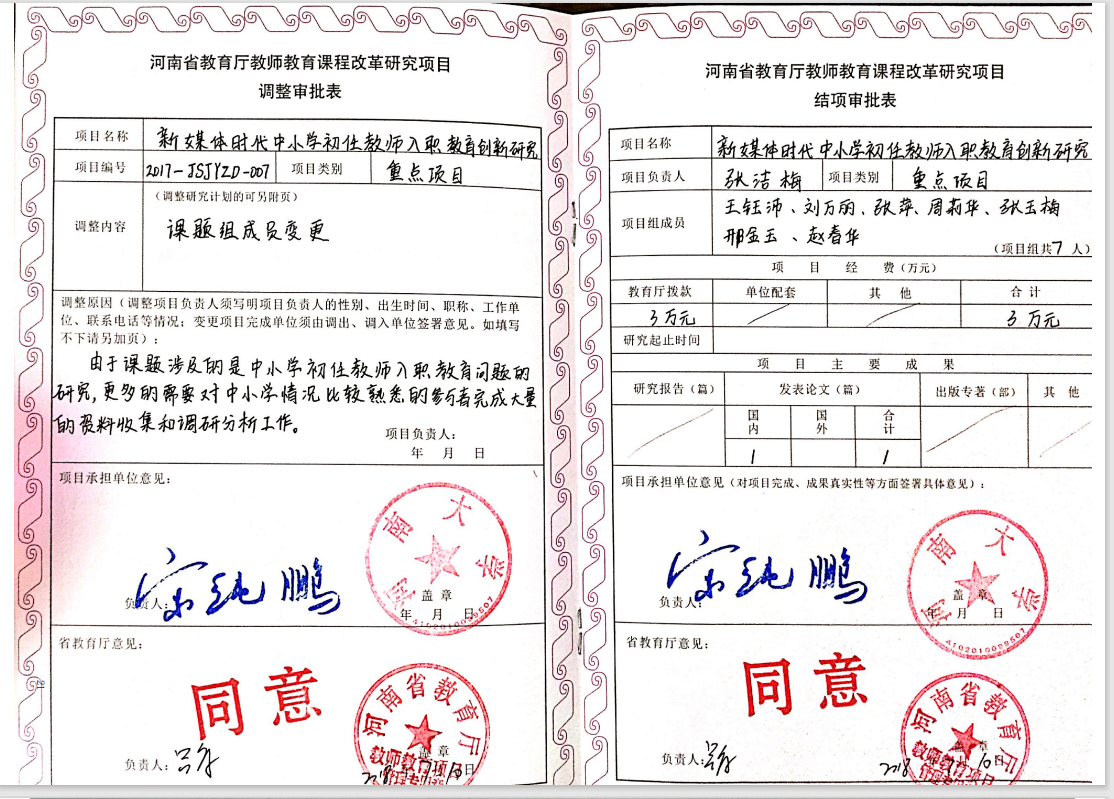 河南省教育厅教师教育课程改革研究项目
调整审批表
项目名称 新媒体时代中小学初任教师入职教育创新研究
项目编号 2017-JSJYZD-007 项目类别 重点项目
(调整研究计划的可另附页)
调整内容 课题组成员变更
调整原因(调整项目负责人须写明项目负责人的性别、出生时间、职称、工作单
位、联系电话等情况;变更项目完成单位须由调出、调入单位签署意见。如填写
不下请另加页):
由于课题涉及的是中小学初任教师入职教育问题的
研究,更多的需要对中小学情况比较熟悉的参与者完成大量
的资料收集和调研分析工作。
项目负责人:
年 月 日
项目承担单位意见:
河南大学
宋纯鹏
负责人:
盖 章
年 月 日
4102010099507
省教育厅意见:
同意
河南省教育厅
教师教育项目
盖 章
负责人:
2018 日
河南省教育厅教师教育课程改革研究项目
结项审批表
项目名称 新媒体时代中小学初任教师入职教育创新研究
项目负责人 张洁梅 项目类别 重点项目
项目组成员 王钰沛、刘万丽、张萍、周莉华、张玉梅
邢金玉、赵春华
(项目组共7人)
项 目 经 费(万元)
教育厅拨款 单位配套 其 他 合 计
3万元 3万元
研究起止时间
项 目 主 要 成 果
研究报告(篇) 发表论文(篇) 出版专著(部) 其 他
国内 国外 合计
1 1
项目承担单位意见(对项目完成、成果真实性等方面签署具体意见):
河南大学
宋纯鹏
负责人:
盖 章
年 月 日
4102010099507
省教育厅意见:
同意
河南省教育厅
教师教育项目
盖 章
负责人:
2018 日